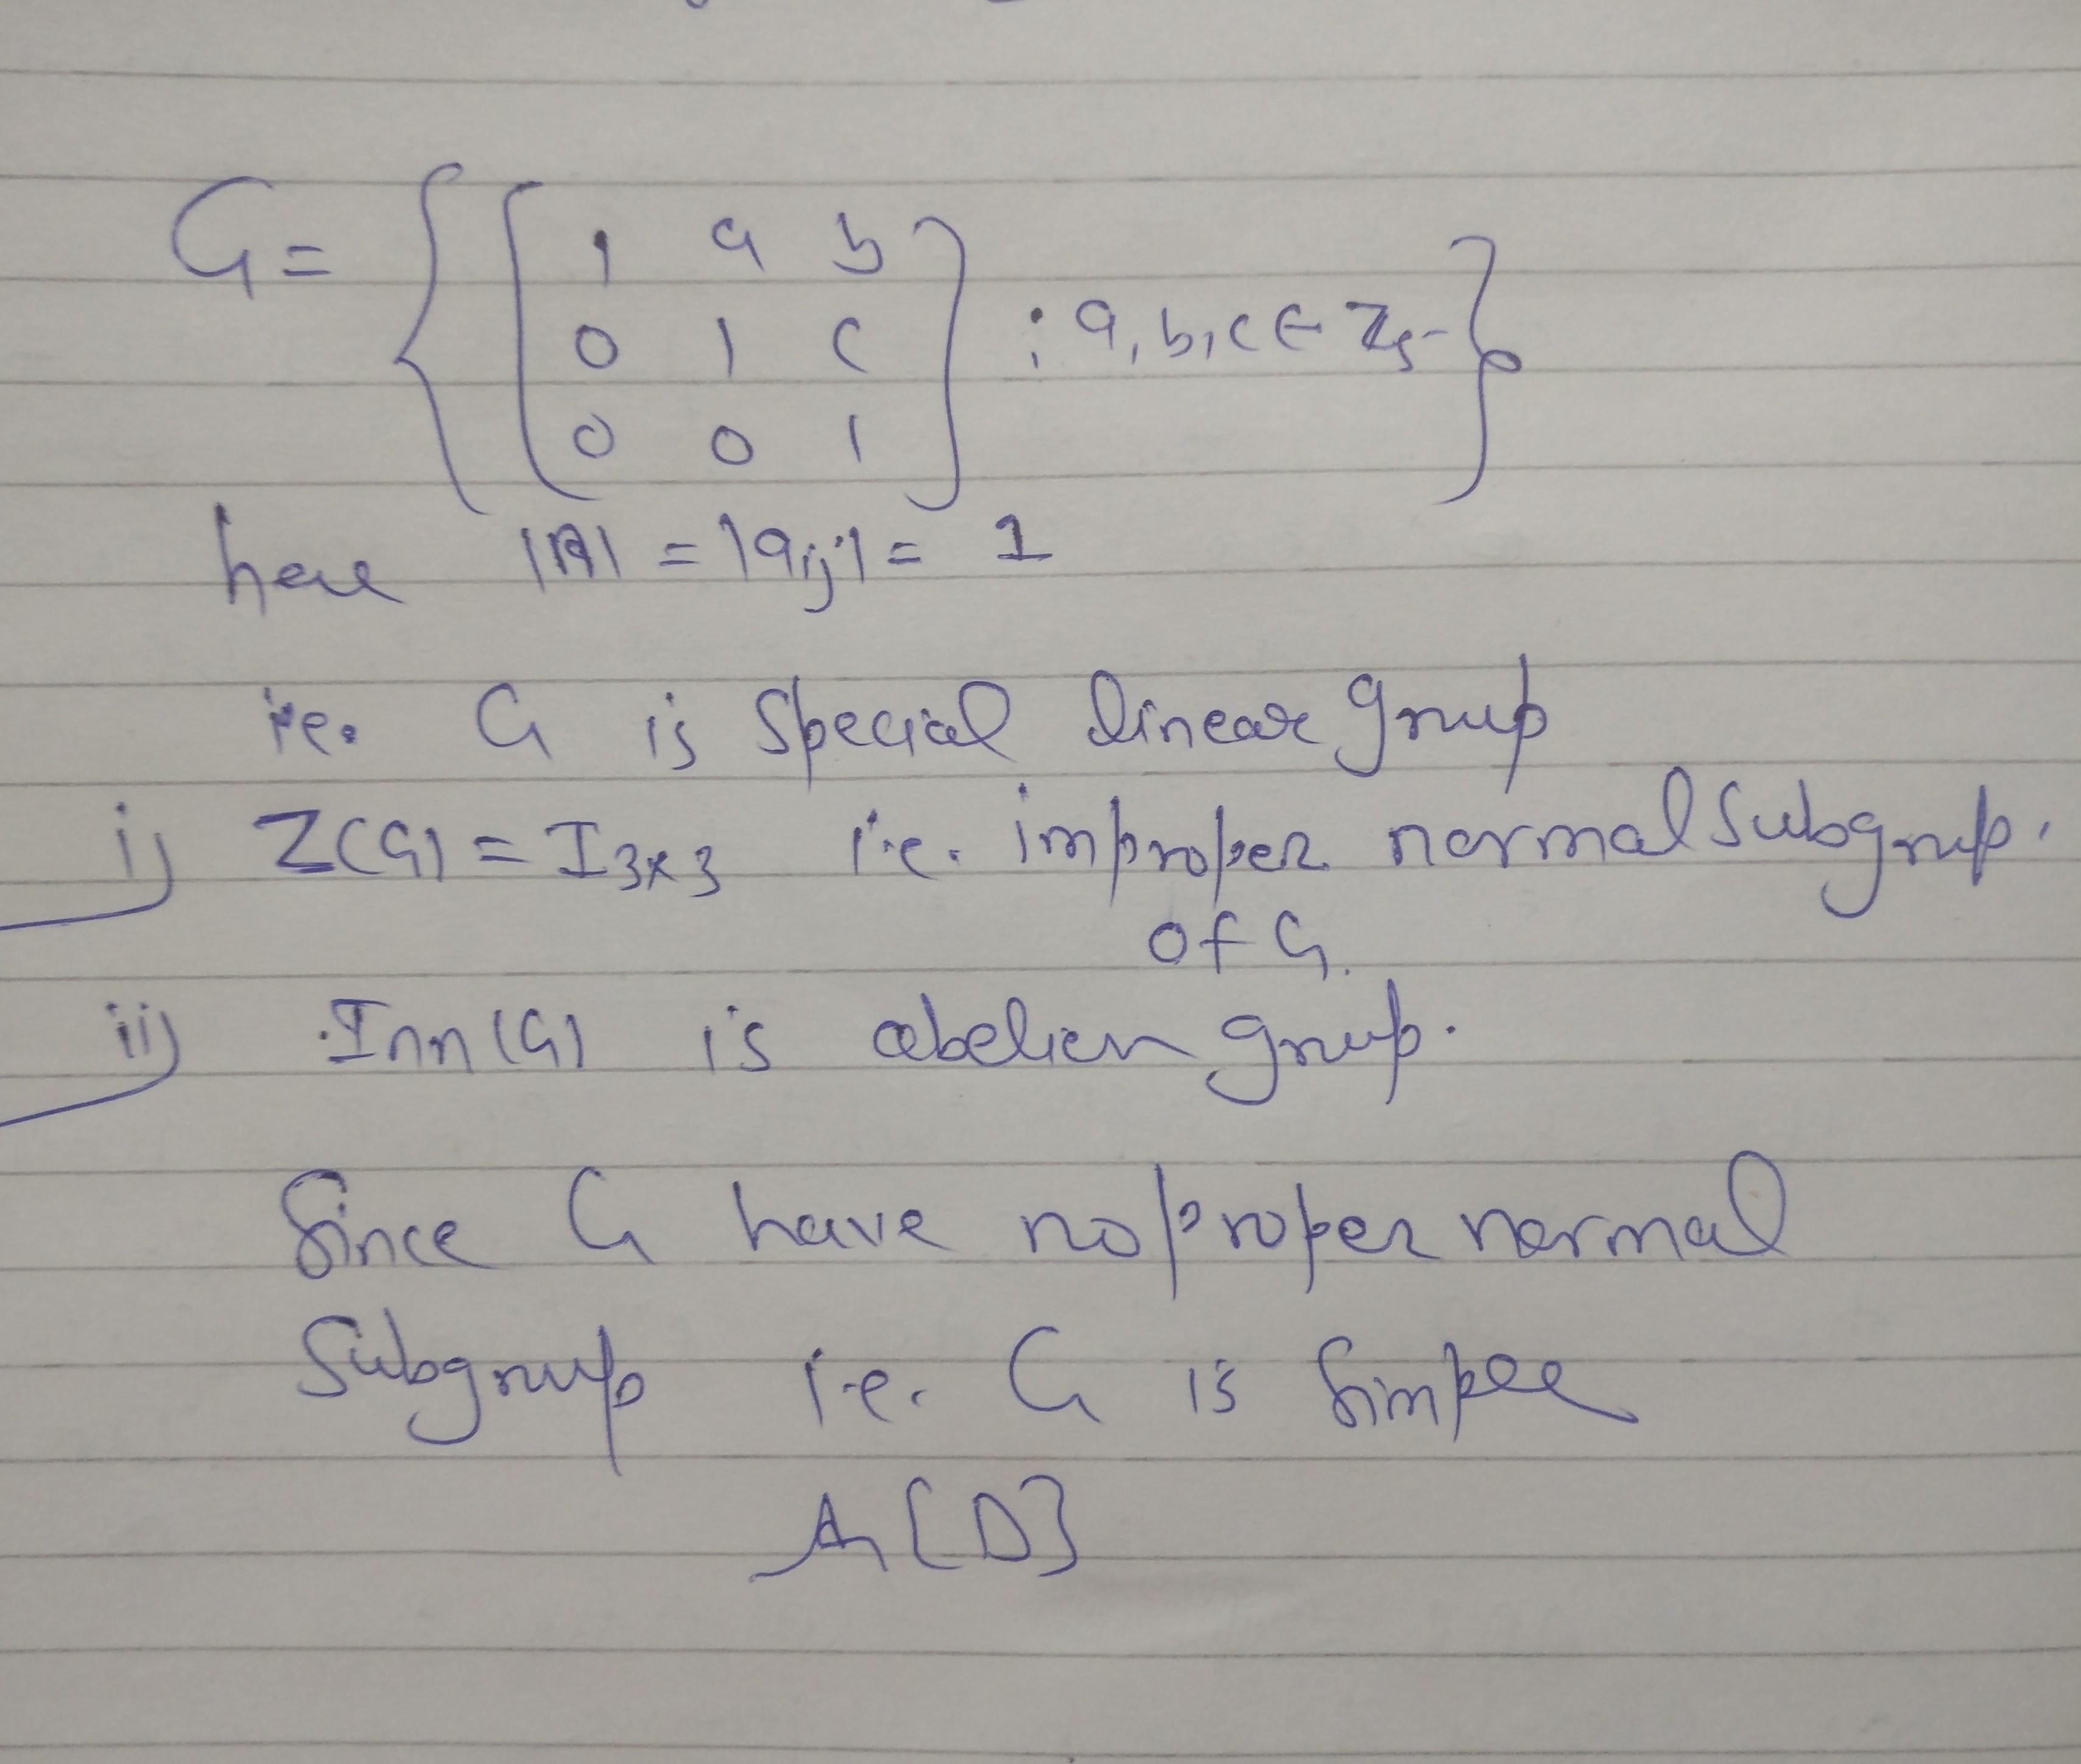 G = { [ 1 a b
0 1 c ] : a, b, c ∈ Z5 }
0 0 1
here |A| = |aij| = 1
i.e. G is Special linear group
i) Z(G) = I3×3 i.e. improper normal Subgroup.
of G.
ii) Inn(G) is abelian group.
Since G have no proper normal
Subgroup i.e. G is Simple
A [D]